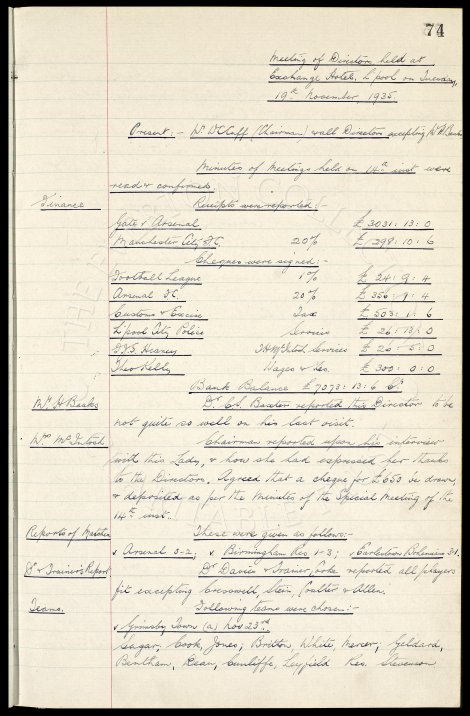 74
Meeting of Directors held at
Exchange Hotel, L'pool on Tuesday,
19th November 1935.
Present:- Mr W.C. Cuff (Chairman) & all Directors excepting Mr H. Banks
Minutes of Meetings held on 14th inst were
read & confirmed
Finance
Receipts were reported:-
Gate v Arsenal £ 3031: 13: 0
Manchester City F.C. 20% £ 298: 10: 6
Cheques were signed:-
Football League 1% £ 24: 9: 4
Arsenal F.C. 20% £ 356: 9: 4
Customs & Excise Tax £ 503: 1: 6
L'pool City Police Services £ 26: 13: 0
Services £ 26: 5: 0
Theo Kelly Wages & £ 300: 0: 0
Bank Balance £7073: 13: 6 Cr
Mr H Banks
Dr. C.S. Baxter reported this Director to be
not quite so well on his last visit.
Mrs McIntosh
Chairman reported upon his interview
with this Lady, & how she had expressed her thanks
to the Directors. Agreed that a cheque for £650 be drawn,
& deposited as per the Minutes of the Special Meeting of the
14th inst.
Reports of Matches
These were given as follows:-
v Arsenal 0-2; v Birmingham Res 1-3; v Earlestown Bohemians 3-1.
Dr & Trainer's Report
Dr Davies & Trainer Cooke reported all players
fit excepting Cresswell, Stein, Coulter & Allen.
Teams.
Following teams were chosen:-
v Grimsby Town (a) Nov 23rd
Sagar, Cook, Jones; Britton, White, Mercer; Geldard,
Bentham, Dean, Cunliffe, Leyfield Res. Stevenson